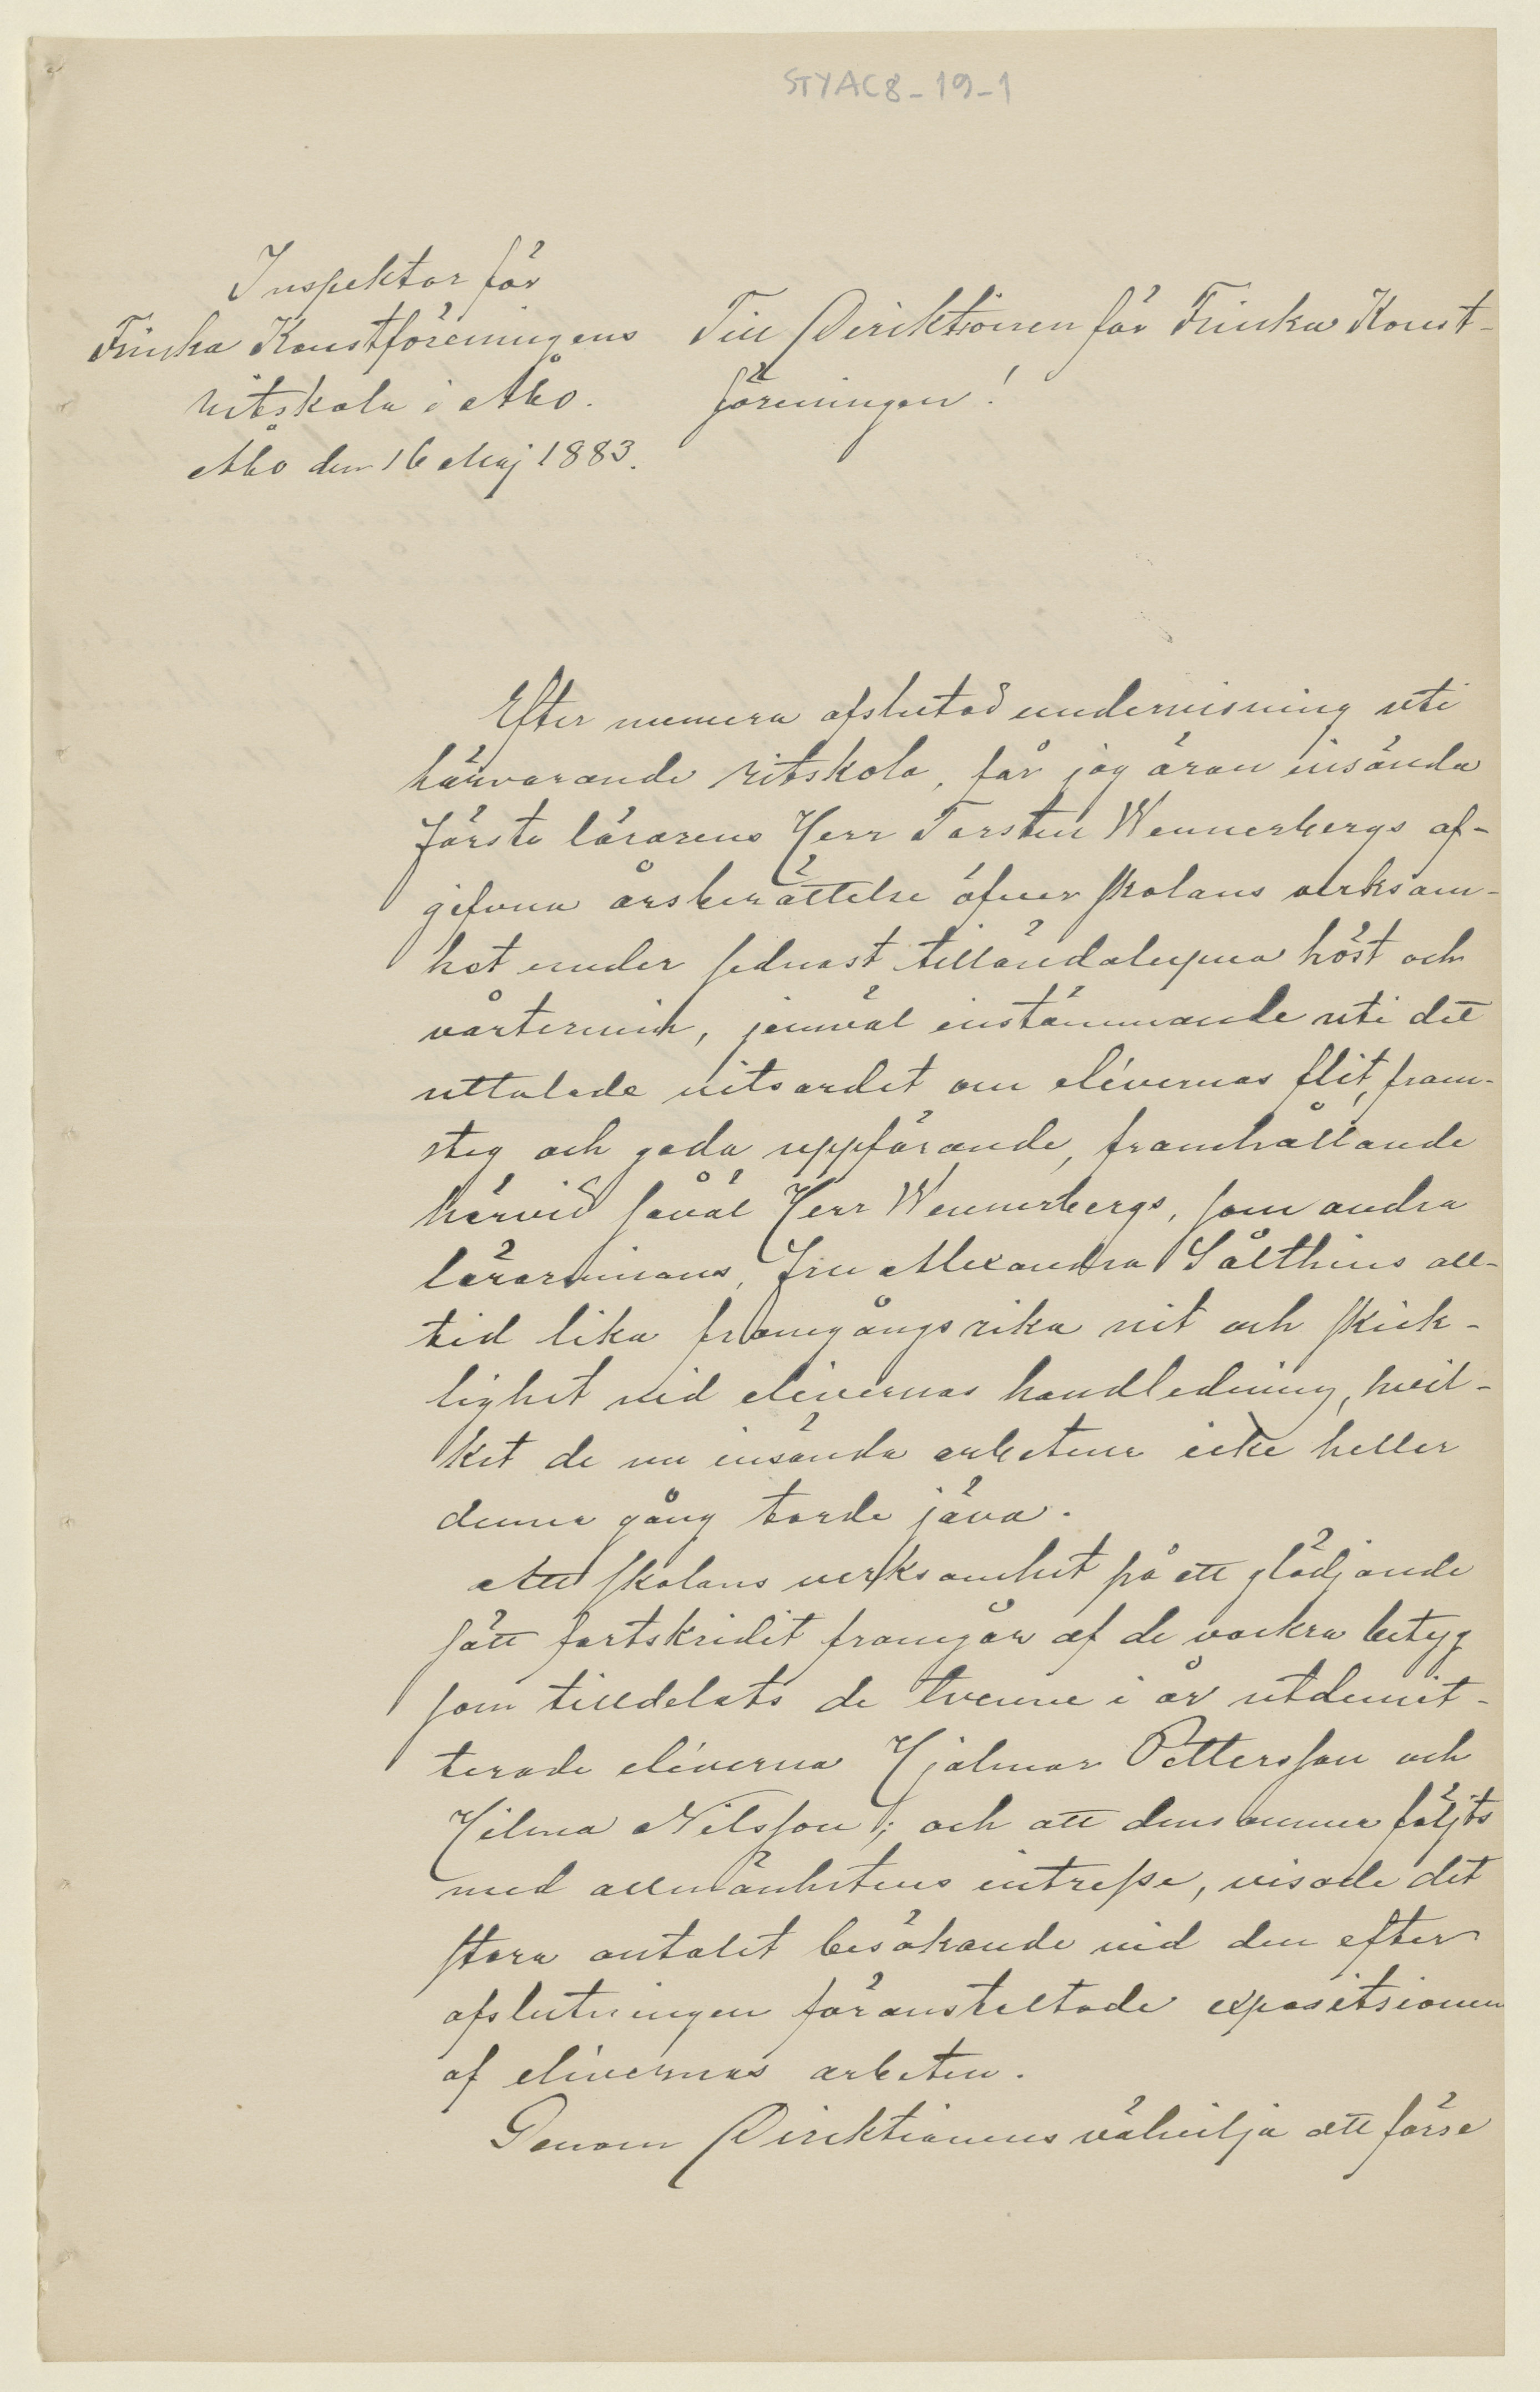 STYAC8-19-1
Inspektor för
Finska Konstföreningens
ritskola i Åbo.
Åbo den 16 Maj 1883.
Till Direktionen för Finska Konst-
föreningen!
Efter numera afslutad undervisning uti
härvarande ritskola, får jag äran insända
förste lärarens Herr Torsten Wennerbergs af-
gifvna årsberättelse öfver skolans verksam-
het under sednast tilländalupna höst och
vårtermin, jemväl instämmande uti det
uttalade vitsordet om elévernas flit, fram-
steg och goda uppförande, framhållande
härvid såväl Herr Wennerbergs, som andra
lärarinnans, Fru Alexandra Såltins all-
tid lika framgångsrika nit och skick-
lighet vid elévernas handledning, hvil-
ket de nu insända arbetena icke heller
denna gång torde jäva.
Att skolans verksamhet på ett glädjande
sätt fortskridit framgår af de vackra betyg
som tilldelats de tvenne i år utdemit-
terade eléverna Hjalmar Pettersson och
Hilma Nilsson; och att densamma följts
med allmänhetens intresse, visade det
stora antalet besökande vid den efter
afslutningen föranstaltade expositsionen
af elévernas arbeten.
Genom Direktionens välvilja att förse